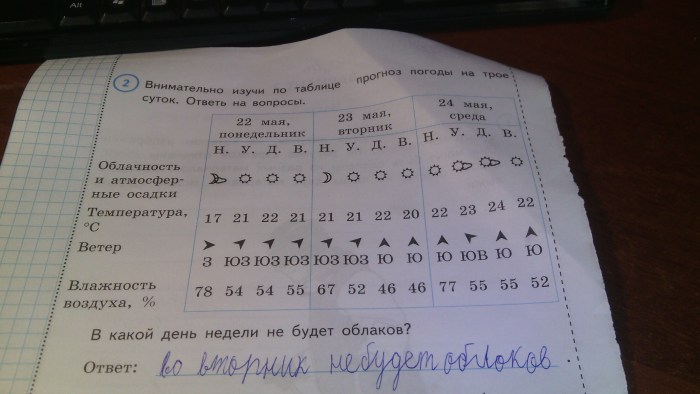 All
2 Внимательно изучи по таблице прогноз погоды на трое
суток. Ответь на вопросы.
22 мая, 23 мая, 24 мая,
понедельник вторник среда
Н. У. Д. В. Н. У. Д. В. Н. У. Д. В.
Облачность
и атмосфер-
ные осадки
Температура, 17 21 22 21 21 21 22 20 22 23 24 22
°С
Ветер
З ЮЗ ЮЗ ЮЗ ЮЗ ЮЗ Ю Ю Ю ЮВ Ю Ю
Влажность
воздуха, % 78 54 54 55 67 52 46 46 77 55 55 52
В какой день недели не будет облаков?
Ответ: во вторник не будет облоков.